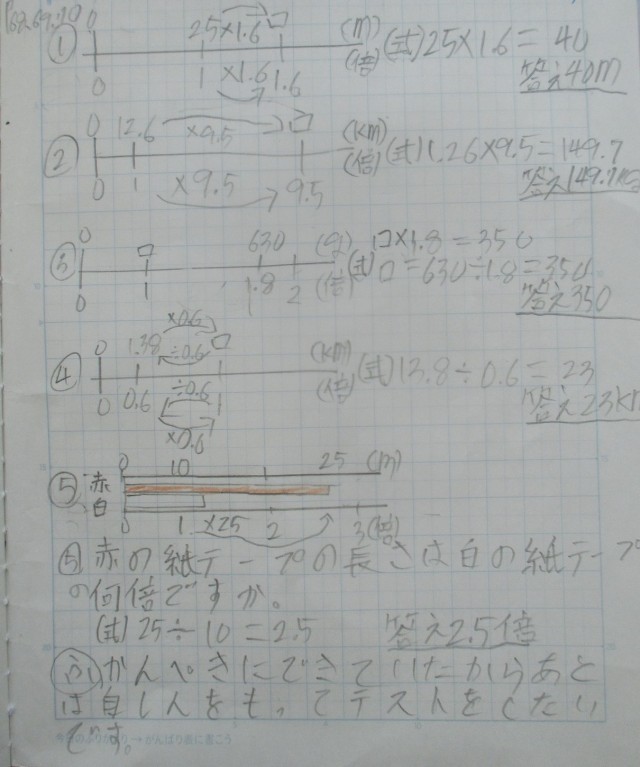 0 25 ×1.6 □ (m)
① (式)25×1.6=40
0 1 ×1.6 1.6 (倍)
答え40m
0 12.6 ×9.5 □ (km)
② (式)1.26×9.5=149.7
0 1 ×9.5 9.5 (倍)
答え149.7
0 □ 630 (g) □×1.8=350
③ (式) □=630÷1.8=350
0 1 1.8 2 (倍)
答え350
×0.6
0 1.38 ÷0.6 □ (km)
④ (式)13.8÷0.6=23
0 0.6 ÷0.6 1 (倍)
×0.6
答え23km
0 10 25 (m)
⑤ 赤
白
0 1 ×25 2 3 (倍)
⑤ 赤の紙テープの長さは白の紙テープ
の何倍ですか。
(式)25÷10=2.5 答え2.5倍
ふかんぺきにできていたからあと
は自しんをもってテストをしたい
です。
→がんばり表に書こう